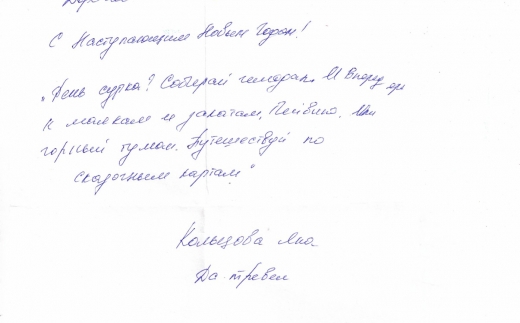 С Наступающим Новым Годом!
„День сурка? Собирай чемодан. И Вперед
к маякам и закатам,
горный туман. Путешествуй по
сказочным картам"
Кольцова Яна.
Да тревел